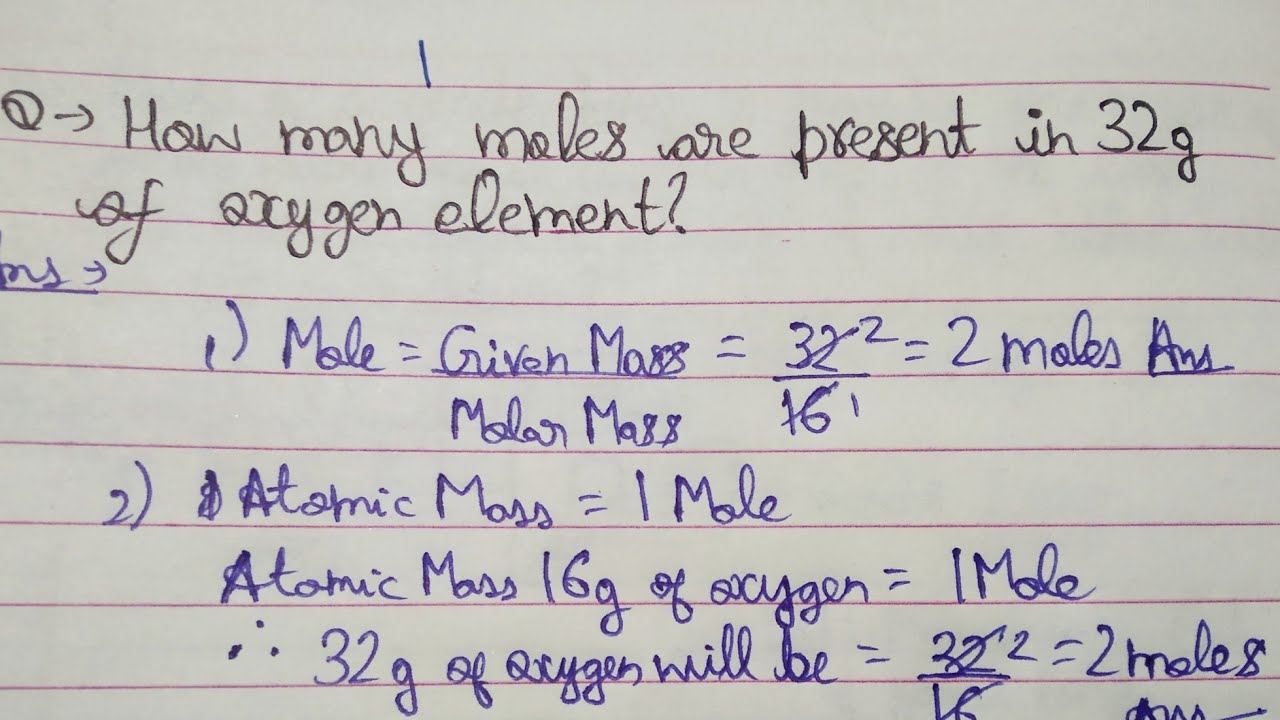 Q→ How many moles are present in 32g
of oxygen element?
Ans→
1) Mole = Given Mass / Molar Mass = 32 2 / 16 1 = 2 moles Ans
2) Atomic Mass = 1 Mole
Atomic Mass 16g of oxygen = 1 Mole
∴ 32g of oxygen will be = 32 2 / 16 = 2 moles
Ans